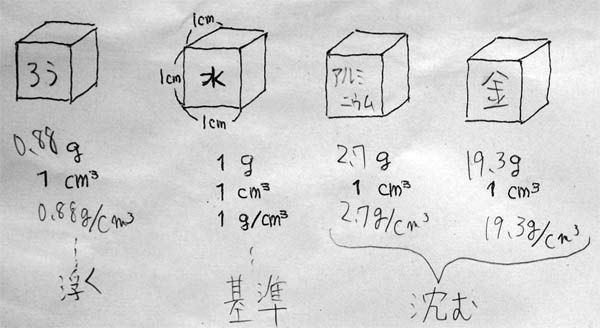 ろう
0.88 g
1 cm³
0.88g/cm³
浮く
1cm
1cm
1cm
水
1 g
1 cm³
1 g/cm³
基準
アルミ
ニウム
2.7 g
1 cm³
2.7g/cm³
金
19.3g
1 cm³
19.3g/cm³
沈む